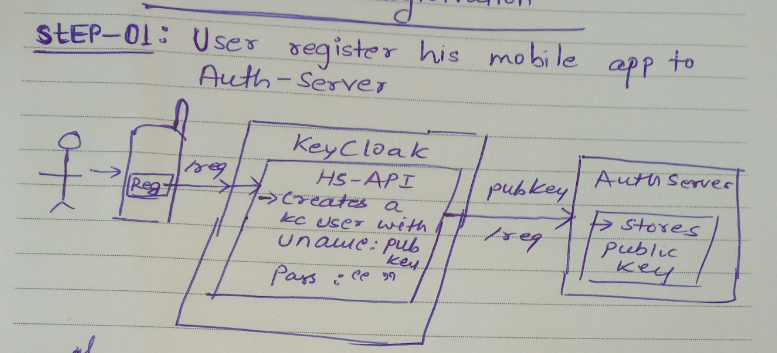 STEP-01: User register his mobile app to
Auth-Server
Reg
/req
KeyCloak
HS-API
→ Creates a
KC user with
Uname: pub
key
Pass : " "
pubkey
/req
Auth Server
→ stores
Public
Key